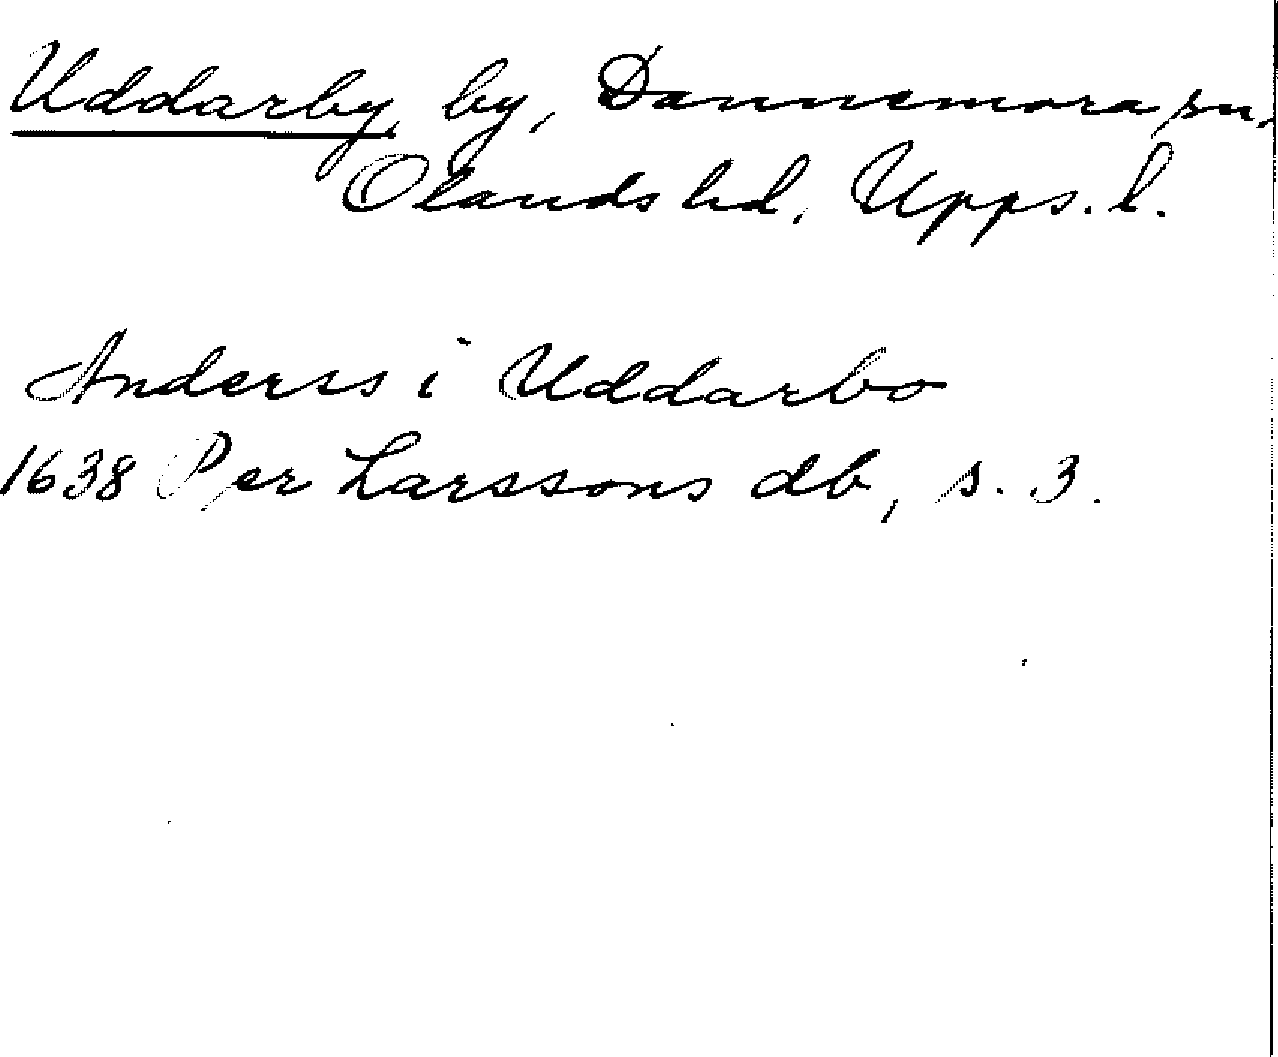 Uddarby by, Dannemora sn,
Olands hd, Upps. l.
Anderss i Uddarbo
1638 Per Larssons db, s. 3.